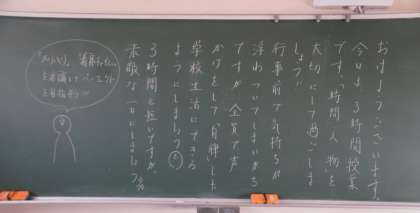 おはようございます。
今日は、3時間授業
です。時間、人、物を
大切にして過ごしま
しょう。
行事前で気持ちが
浮わついてしまいがち
ですが、全員で声
かけをして「自律」した
学校生活にできる
ようにしましょう
3時間と短いですが、
素敵な一日にしましょう。
を意識して
を目指す!!